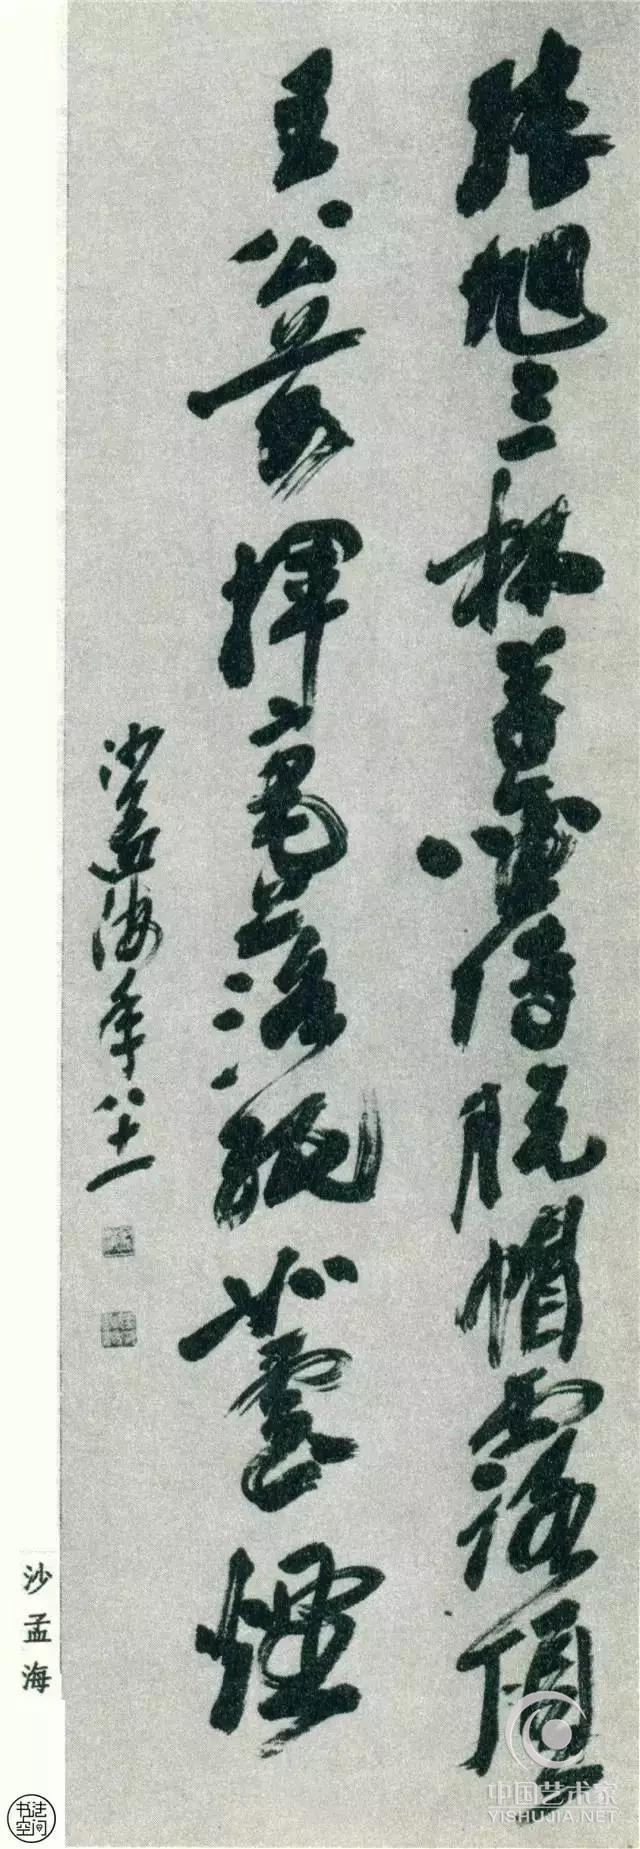 張旭三杯草聖傳脫帽露頂
王公前揮毫落紙如雲煙
沙孟海年八十一
沙孟海
书法
空间
中国艺术家
YISHUJIA.NET